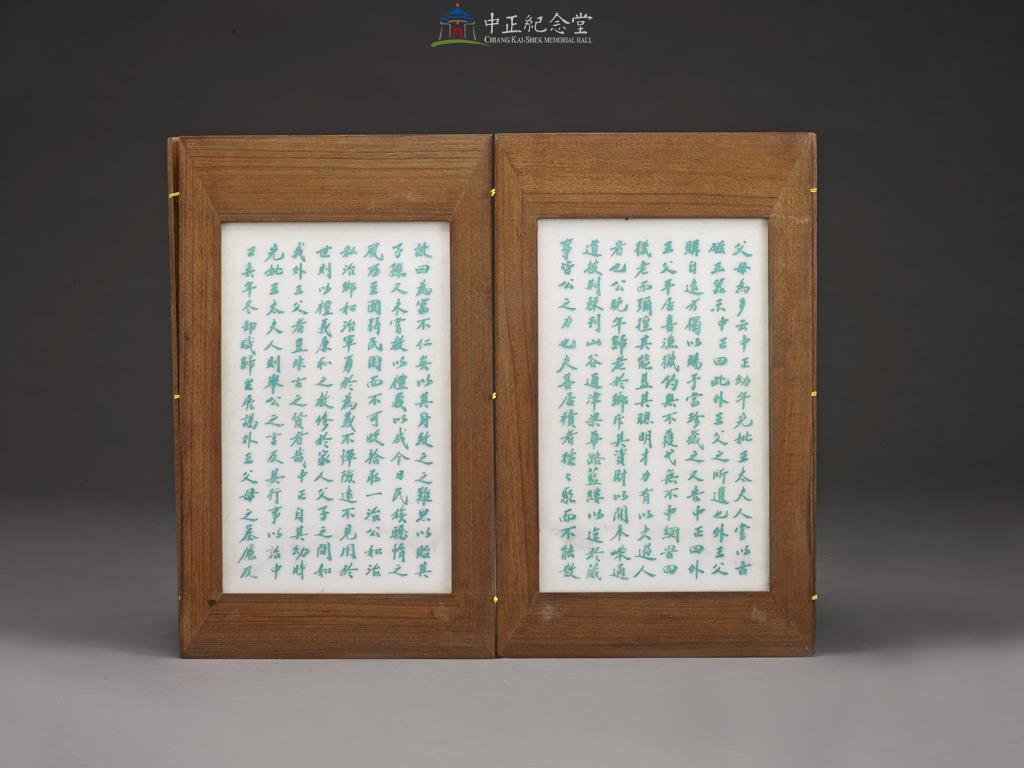 中正紀念堂
CHIANG KAI-SHEK MEMORIAL HALL
父母為多云中正幼年先妣王太夫人嘗以古
磁玉器示中正曰此外王父之所遺也外王父
購自遠方獨以賜予當珍藏之又告中正曰外
王父平居喜漁獵釣無不獲弋無不中網罟田
獵老而彌擅其能蓋其聰明才力有以大過人
者也公晚年歸老於鄉斥其資財以開奉嵊通
道披荊棘刊山谷通津梁蓽路藍縷以迄於蕆
事皆公之力也夫善居積者往〻聚而不能散
故曰為富不仁矣以其身致之之難思以貽其
子孫又未嘗教以禮義以成今日民族驕惰之
風乃至國弱民困而不可收拾一治公如治
私治鄉如治軍勇於為義不憚險遠不見用於
世則以禮義廉恥之教修於家人父子之間如
我外王父者豈非之賢者哉中正自其幼時
先妣王太夫人則舉公之言及其行事以詔中
正年冬卸職歸里展謁外王父母之墓廬及